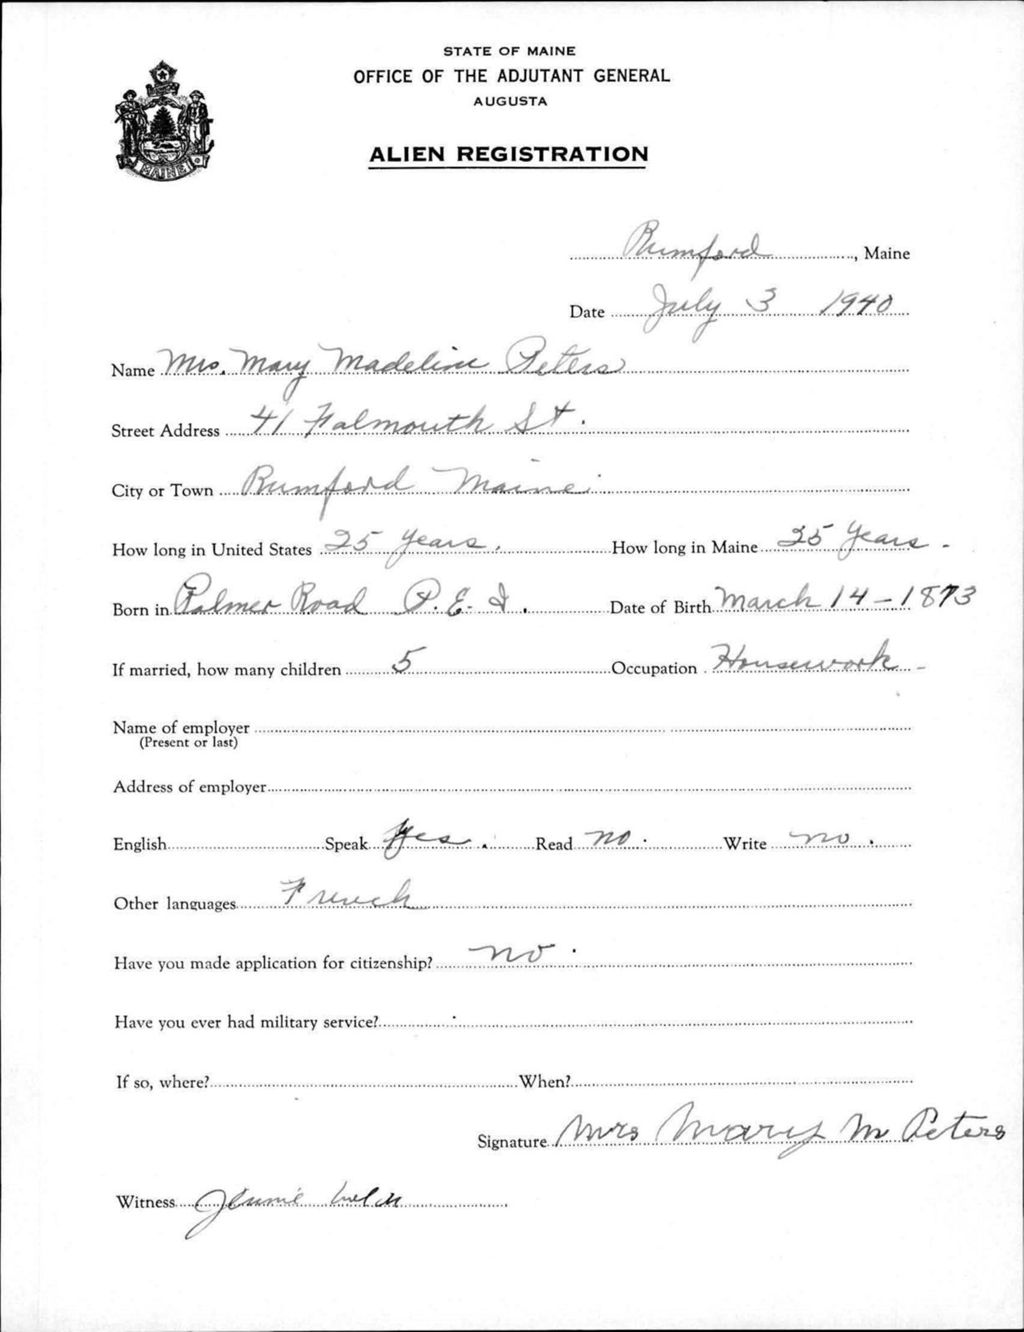 STATE OF MAINE
OFFICE OF THE ADJUTANT GENERAL
AUGUSTA
MAINE
ALIEN REGISTRATION
Rumford, Maine
Date July 3 1940
Name Mrs. Mary Madeline Peters
Street Address 41 Falmouth St.
City or Town Rumford Maine
How long in United States 25 years. How long in Maine 25 years -
Born in Palmer Road P.E.I. Date of Birth March 14-1873
If married, how many children 5 Occupation Housework -
Name of employer
(Present or last)
Address of employer
English Speak yes. Read no. Write no.
Other languages French
Have you made application for citizenship? no.
Have you ever had military service?
If so, where? When?
Signature Mrs Mary M Peters
Witness Jennie